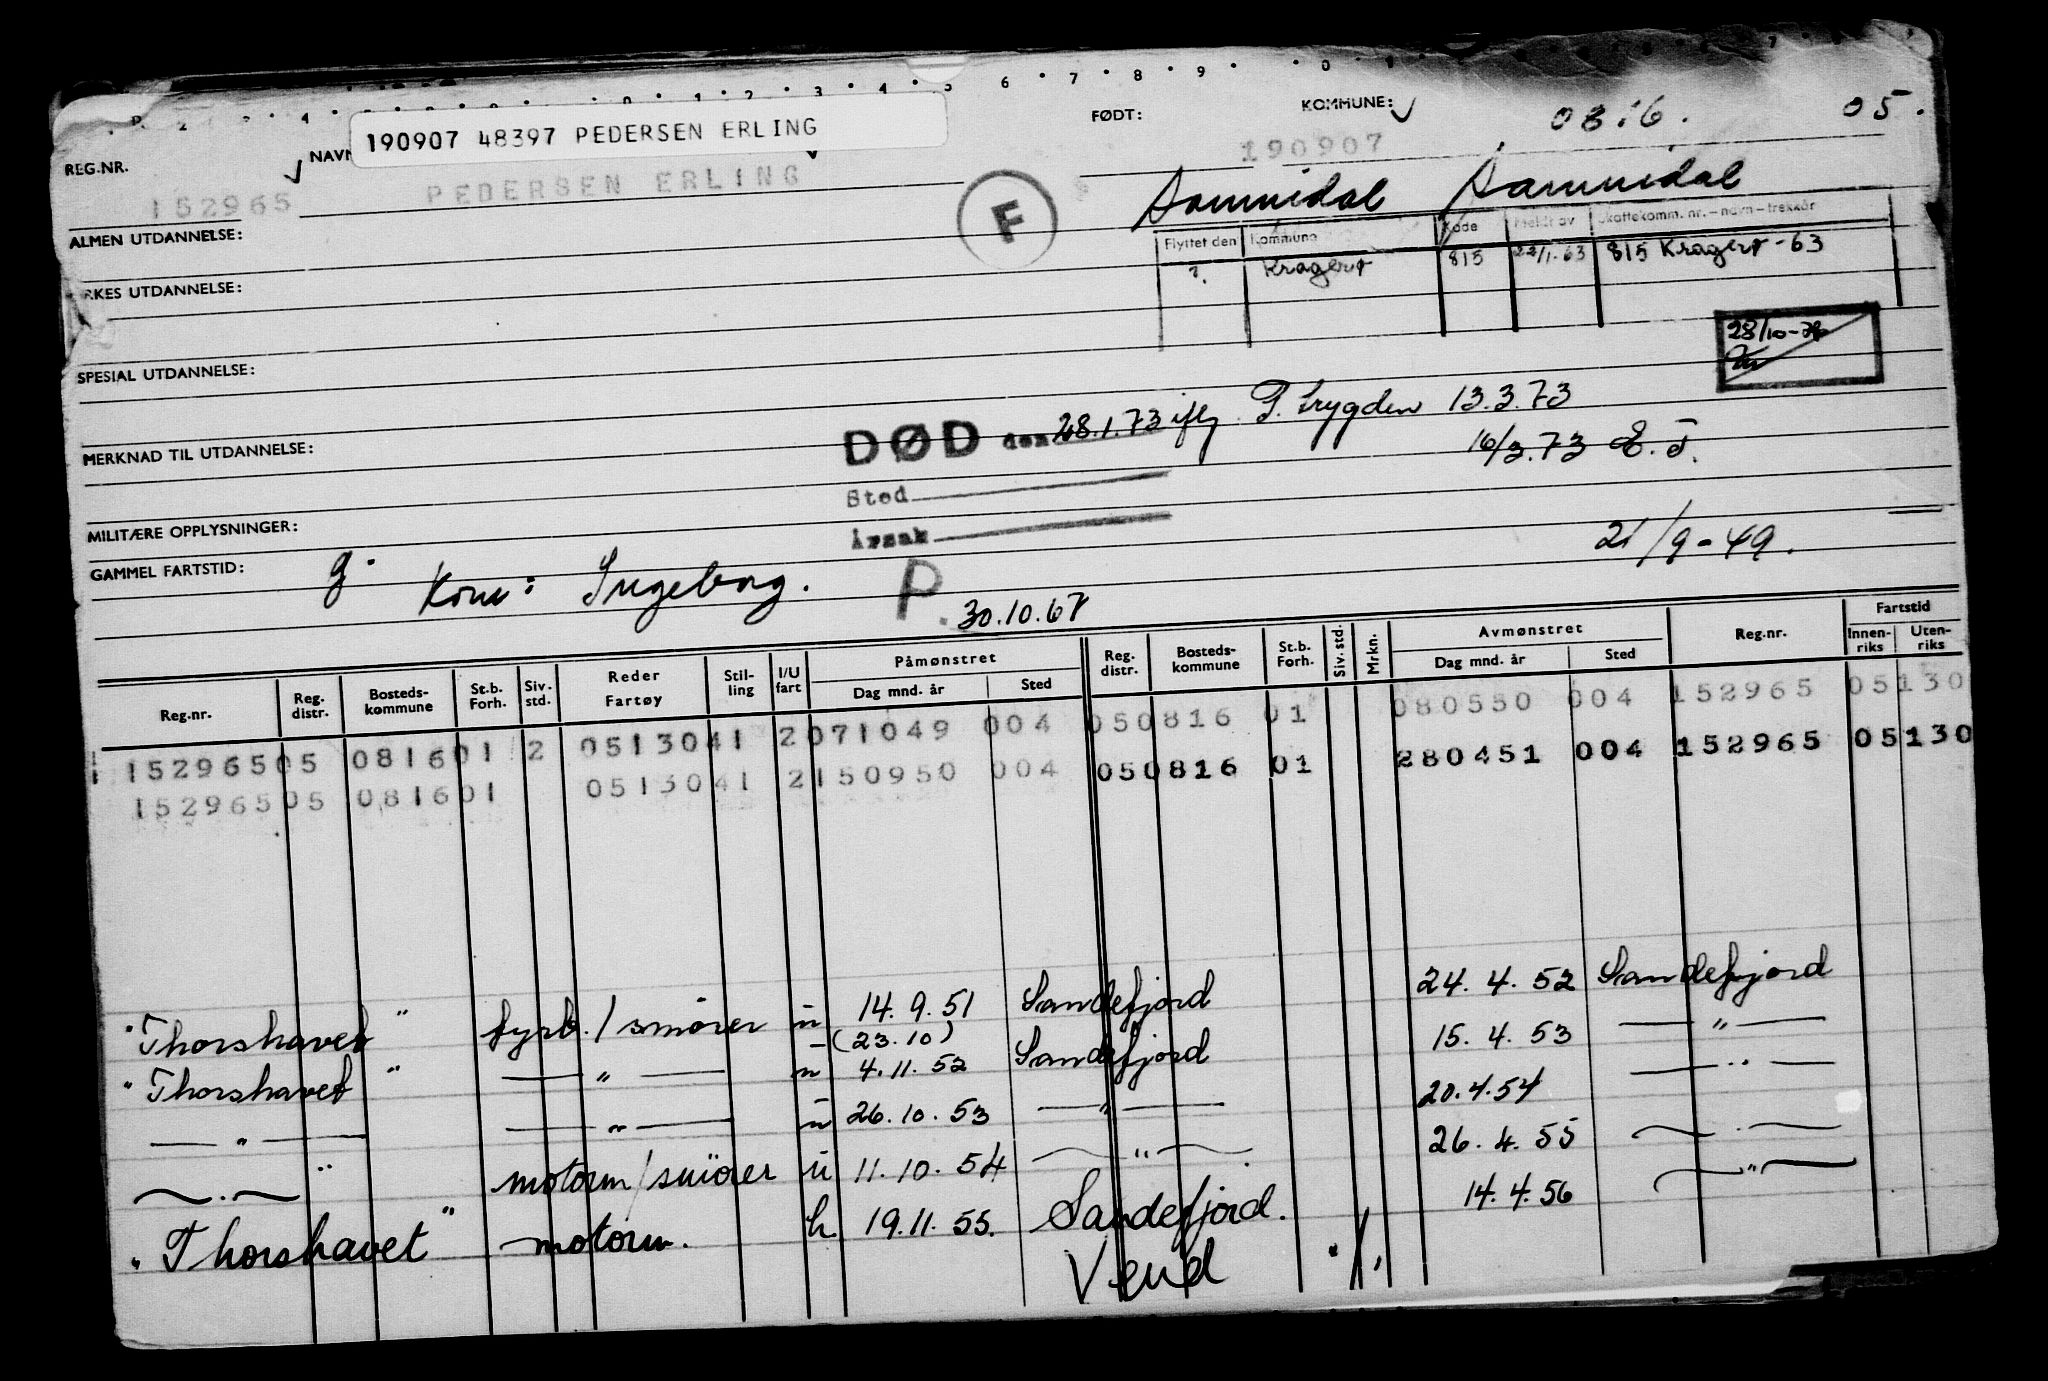 190907 48397 PEDERSEN ERLING
FØDT: KOMMUNE: 0816. 05.
REG.NR. NAVN 190907
152965 PEDERSEN ERLING F Sannidal Sannidal
ALMEN UTDANNELSE:
Flyttet den Kommune Kode Meldt av Skattekomm. nr. – navn – trekkår
? Kragerø 815 22/1. 63 815 Kragerø - 63
RKES UTDANNELSE:
28/10-76
SPESIAL UTDANNELSE:
DØD den 28.1.73 iflg P. trygden 13.3.73
MERKNAD TIL UTDANNELSE:
16/3.73 E. T.
Sted
MILITÆRE OPPLYSNINGER:
Årsak
21/9-49.
GAMMEL FARTSTID: g. Kone: Ingeborg. P. 30.10.67
Reg.nr. Reg. distr. Bosteds-kommune St.b. Forh. Siv. std. Reder Fartøy Stil-ling I/U fart Påmønstret Dag mnd. år Sted Reg. distr. Bosteds-kommune St.b. Forh. Siv. std. Mrkn. Avmønstret Dag mnd. år Sted Reg.nr. Fartstid Innen-riks Uten-riks
152965 05 0816 01 2 05130 41 2 071049 004 05 0816 01 080550 004 152965 05130
152965 05 0816 01 05130 41 2 150950 004 05 0816 01 280451 004 152965 05130
"Thorshavet" fyrb./smører u 14.9.51 Sandefjord 24.4.52 Sandefjord
"Thorshavet" — " — u (23.10) 4.11.52 Sandefjord 15.4.53 — " —
— " — — " — u 26.10.53 — " — 20.4.54 — " —
— " — motorm/smører u 11.10.54 — " — 26.4.55 — " —
"Thorshavet" motorm. h 19.11.55. Sandefjord. 14.4.56 — " —
Vend ./.